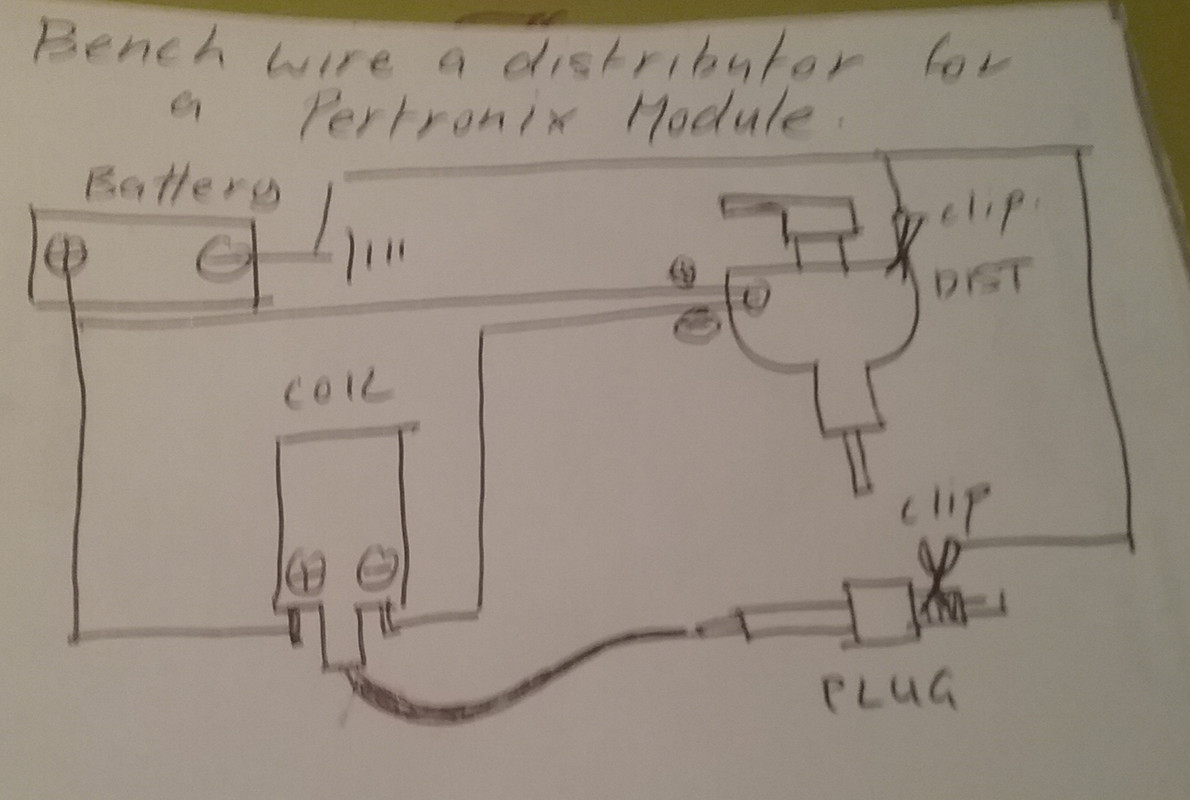 Bench wire a distributor for
a Pertronix Module.
Battery
+ -
clip.
DIST
+
-
COIL
+ -
clip
PLUG